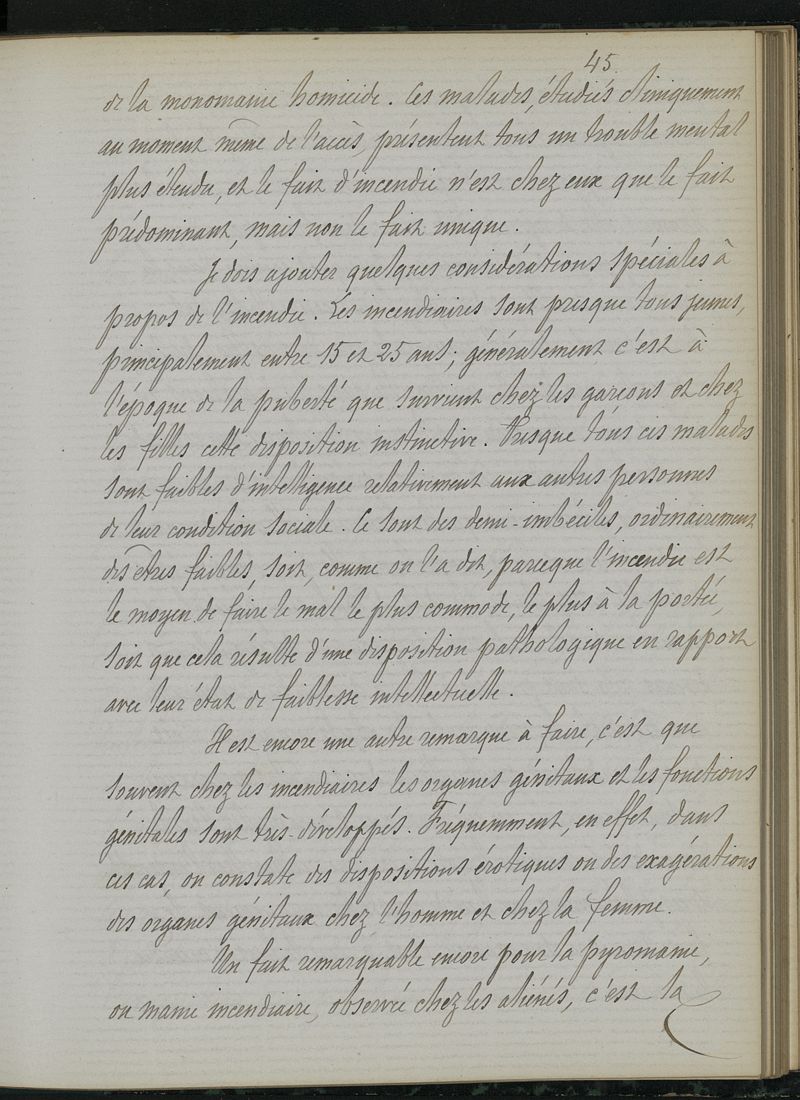 45.
de la monomanie homicide. Ces malades, étudiés cliniquement
au moment même de l'accès, présentent tous un trouble mental
plus étendu, et le fait d'incendie n'est chez eux que le fait
prédominant, mais non le fait unique.
Je dois ajouter quelques considérations spéciales à
propos de l'incendie. Les incendiaires sont presque tous jeunes,
principalement entre 15 et 25 ans; généralement c'est à
l'époque de la puberté que survient chez les garçons et chez
les filles cette disposition instinctive. Presque tous ces malades
sont faibles d'intelligence relativement aux autres personnes
de leur condition sociale. Ce sont des demi-imbéciles, ordinairement
des êtres faibles, soit, comme on l'a dit, parceque l'incendie est
le moyen de faire le mal le plus commode, le plus à la portée,
soit que cela résulte d'une disposition pathologique en rapport
avec leur état de faiblesse intellectuelle.
Il est encore une autre remarque à faire, c'est que
souvent chez les incendiaires les organes génitaux et les fonctions
génitales sont très-développés. Fréquemment, en effet, dans
ces cas, on constate des dispositions érotiques ou des exagérations
des organes génitaux chez l'homme et chez la femme.
Un fait remarquable encore pour la pyromanie,
ou manie incendiaire, observée chez les aliénés, c'est la